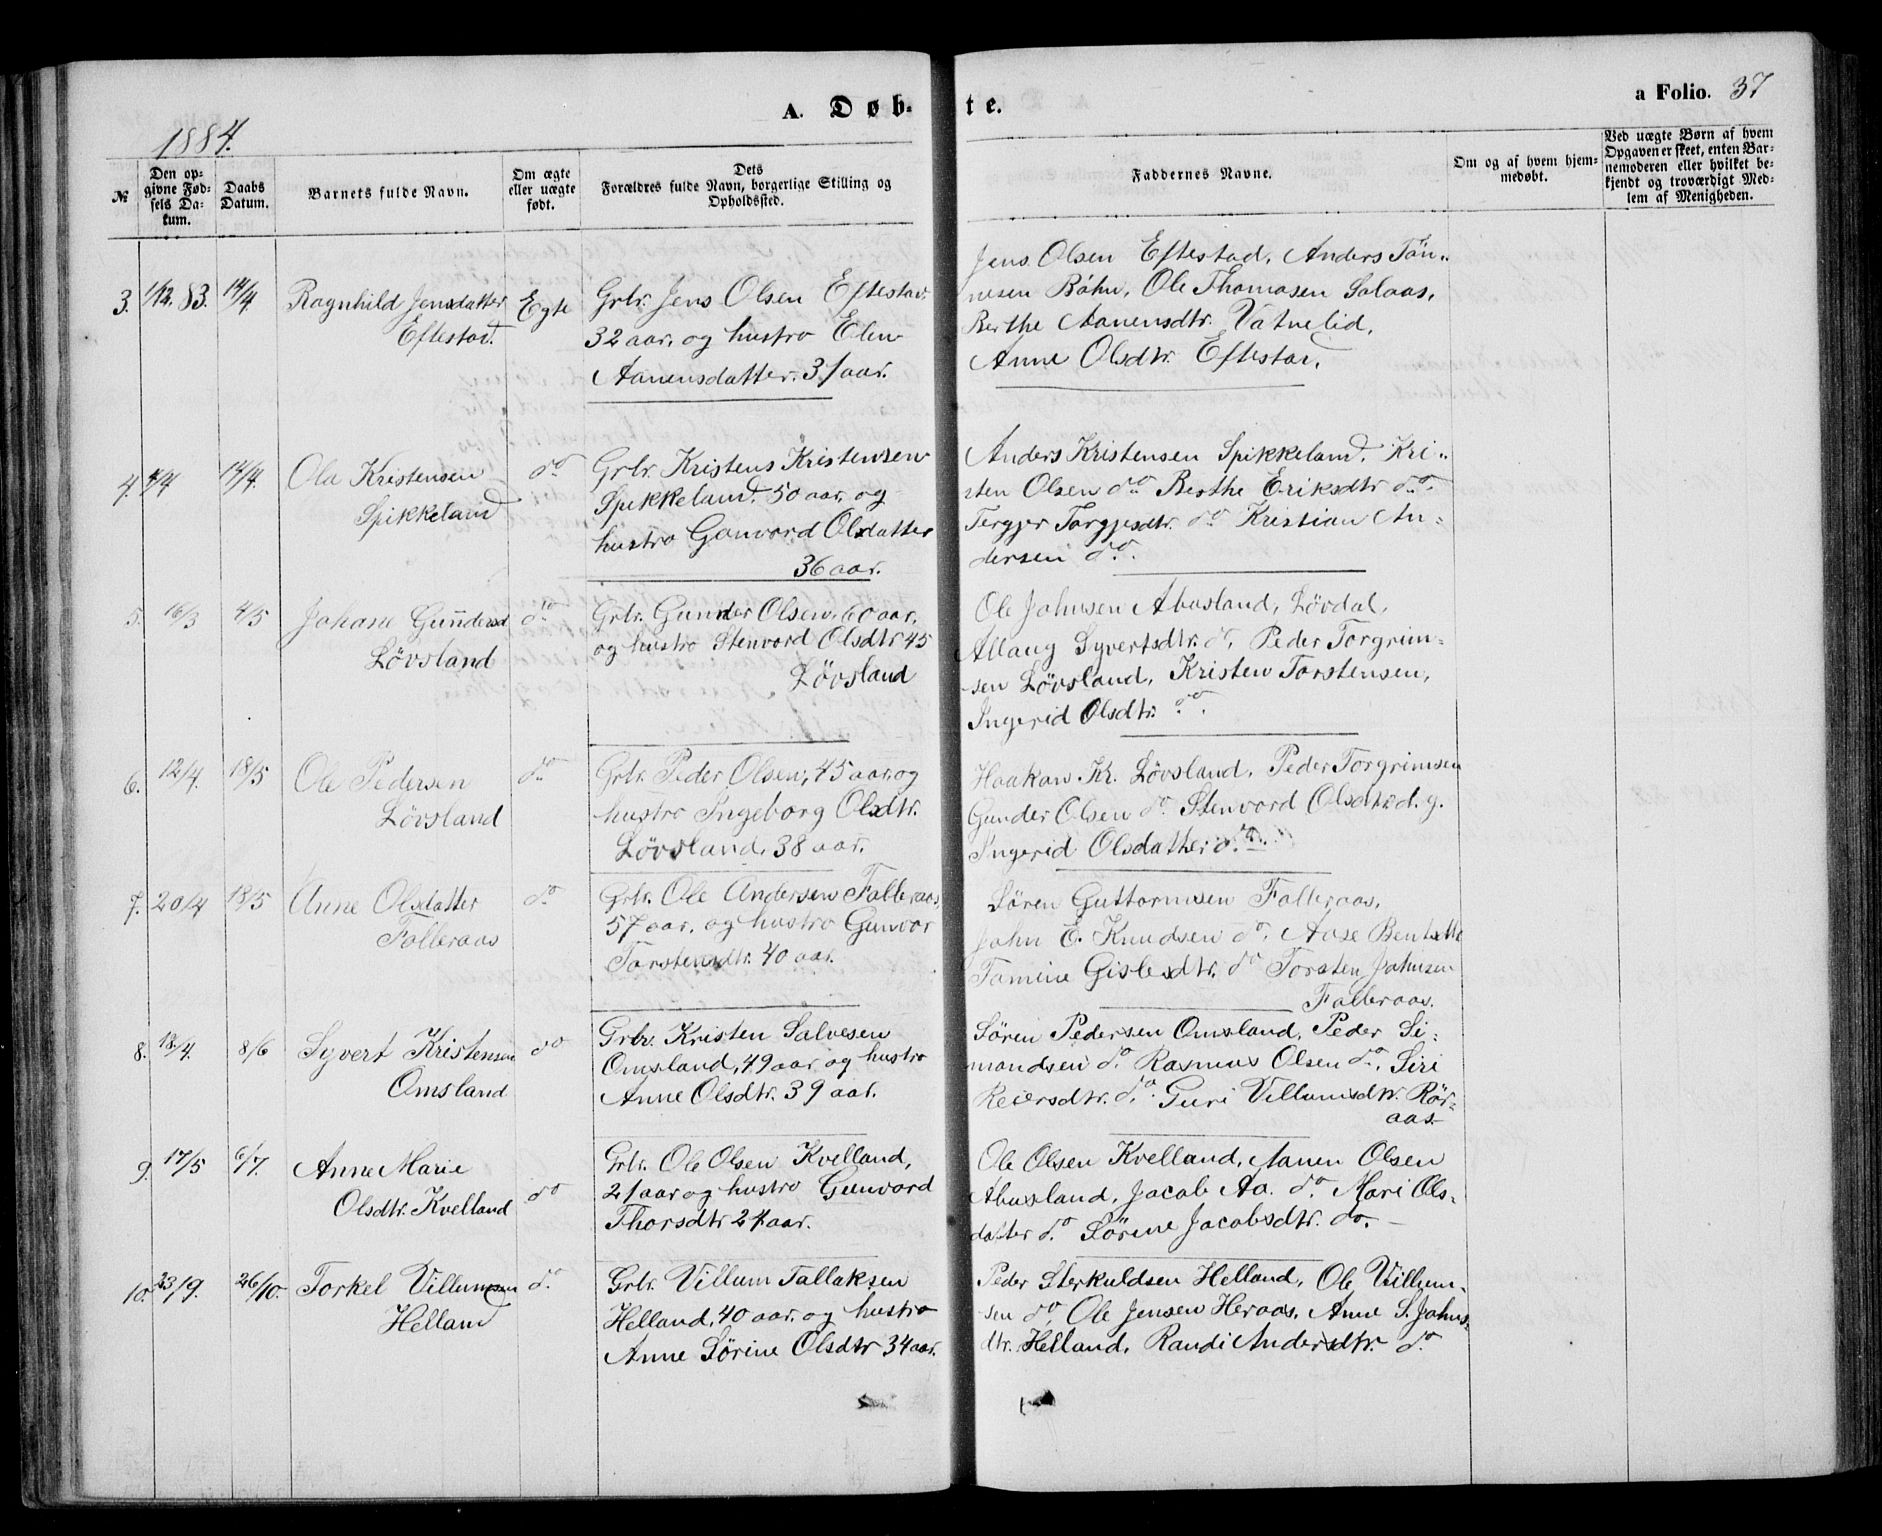 A. Døbte.
a Folio. 37
1884.
№
Den opgivne Fødsels Dakum.
Daabs Datum.
Barnets fulde Navn.
Om ægte eller uægte født.
Dets Forældres fulde Navn, borgerlige Stilling og Opholdssted.
Faddernes Navne.
Om og af hvem hjemmedøbt.
Ved uægte Børn af hvem Opgaven er skeet, enten Barnemoderen eller hvilket bekjendt og troværdigt Medlem af Menigheden.
3. 1/12.83. 14/4 Ragnhild Jensdatter
Eftestad.
Egte
Grbr. Jens Olsen Eftestad.
32 aar. og hustro Elen
Aanensdatter. 31 aar.
Jens Olsen Eftestad, Anders Tön„
nesen Bóhn, Ole Thomasen Salaas,
Berthe Aanensdtr. Vatnelid,
Anne Olsdtr. Eftestad.
4. 14/4. Ola Kristensen
Spikkeland
do
Grbr. Kristens Kristensen
Spikkeland. 50 aar, og
hustro Gonvord Olsdatter
36 aar.
Anders Kristensen Spikkeland. Kri„
sten Olsen do Berthe Eriksdtr do.
Tergjer Torgjesdtr. do Kristian An-
dersen do.
5. 16/3 4/5 Johane Gundersd
Lövsland
do
Grbr. Gunder Olsen, 60 aar,
og hustro Stenvord Olsdtr 45
Lövsland
Ole Johnsen Abusland, Lövdal,
Allaug Syvertsdtr. do, Peder Torgrim-
sen Lövsland, Kristen Torstensen,
Ingerid Olsdtr. do.
6. 12/4. 18/5 Ole Pedersen
Lövsland
do
Grbr. Peder Olsen, 45 aar, og
hustro Ingeborg Olsdtr.
Lövsland, 38 aar.
Haakon Kr. Lövsland, Peder Torgrimsen
Gunder Olsen do Stenvord Olsdtr. d. g.
Ingerid Olsdatter do.
7. 20/4 18/5 Anne Olsdatter
Falleraas
do
Grbr. Ole Andersen Falleraas,
57 aar, og hustro Gunvor
Torstensdtr. 40 aar.
Sören Guttormsen Falleraas,
John E. Knudsen do, Aase Bentsdtr
Tamine Gislesdtr. do Torsten Johnsen
Falleraas.
8. 18/4. 8/6 Syvert Kristensen
Omsland
do
Grbr. Kristen Salvesen
Omsland, 49 aar og hustro
Anne Olsdtr. 39 aar.
Sören Pedersen Omsland, Peder Si-
mondsen do Rasmus Olsen do, Siri
Reiersdtr. do. Guri Villumsdtr. Rör-
aas.
9. 17/5 6/7. Anne Marie
Olsdtr. Kvelland
do
Grbr. Ole Olsen Kvelland,
21 aar og hustro Gunvord
Thorsdtr 24 aar.
Ole Olsen Kvelland, Aanen Olsen
Abusland, Jacob Aa. do Mari Ols-
datter do Sörine Jacobsdtr. do.
10. 23/9. 26/10. Torkel Villumsen
Helland
do
Grbr. Villum Tallaksen
Helland, 40 aar, og hustro
Anne Sörine Olsdtr 34 aar.
Peder Sterkuldsen Helland, Ole Villum-
sen do, Ole Jensen Heraas, Anne S. Johns-
dtr. Helland, Randi Andersdtr. do